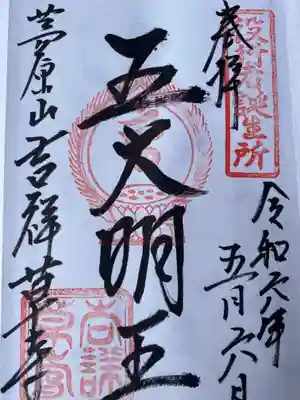 役行者誕生所
奉拝
令和六年
五月六日
五大明王
茅原山吉祥草寺
吉祥草寺